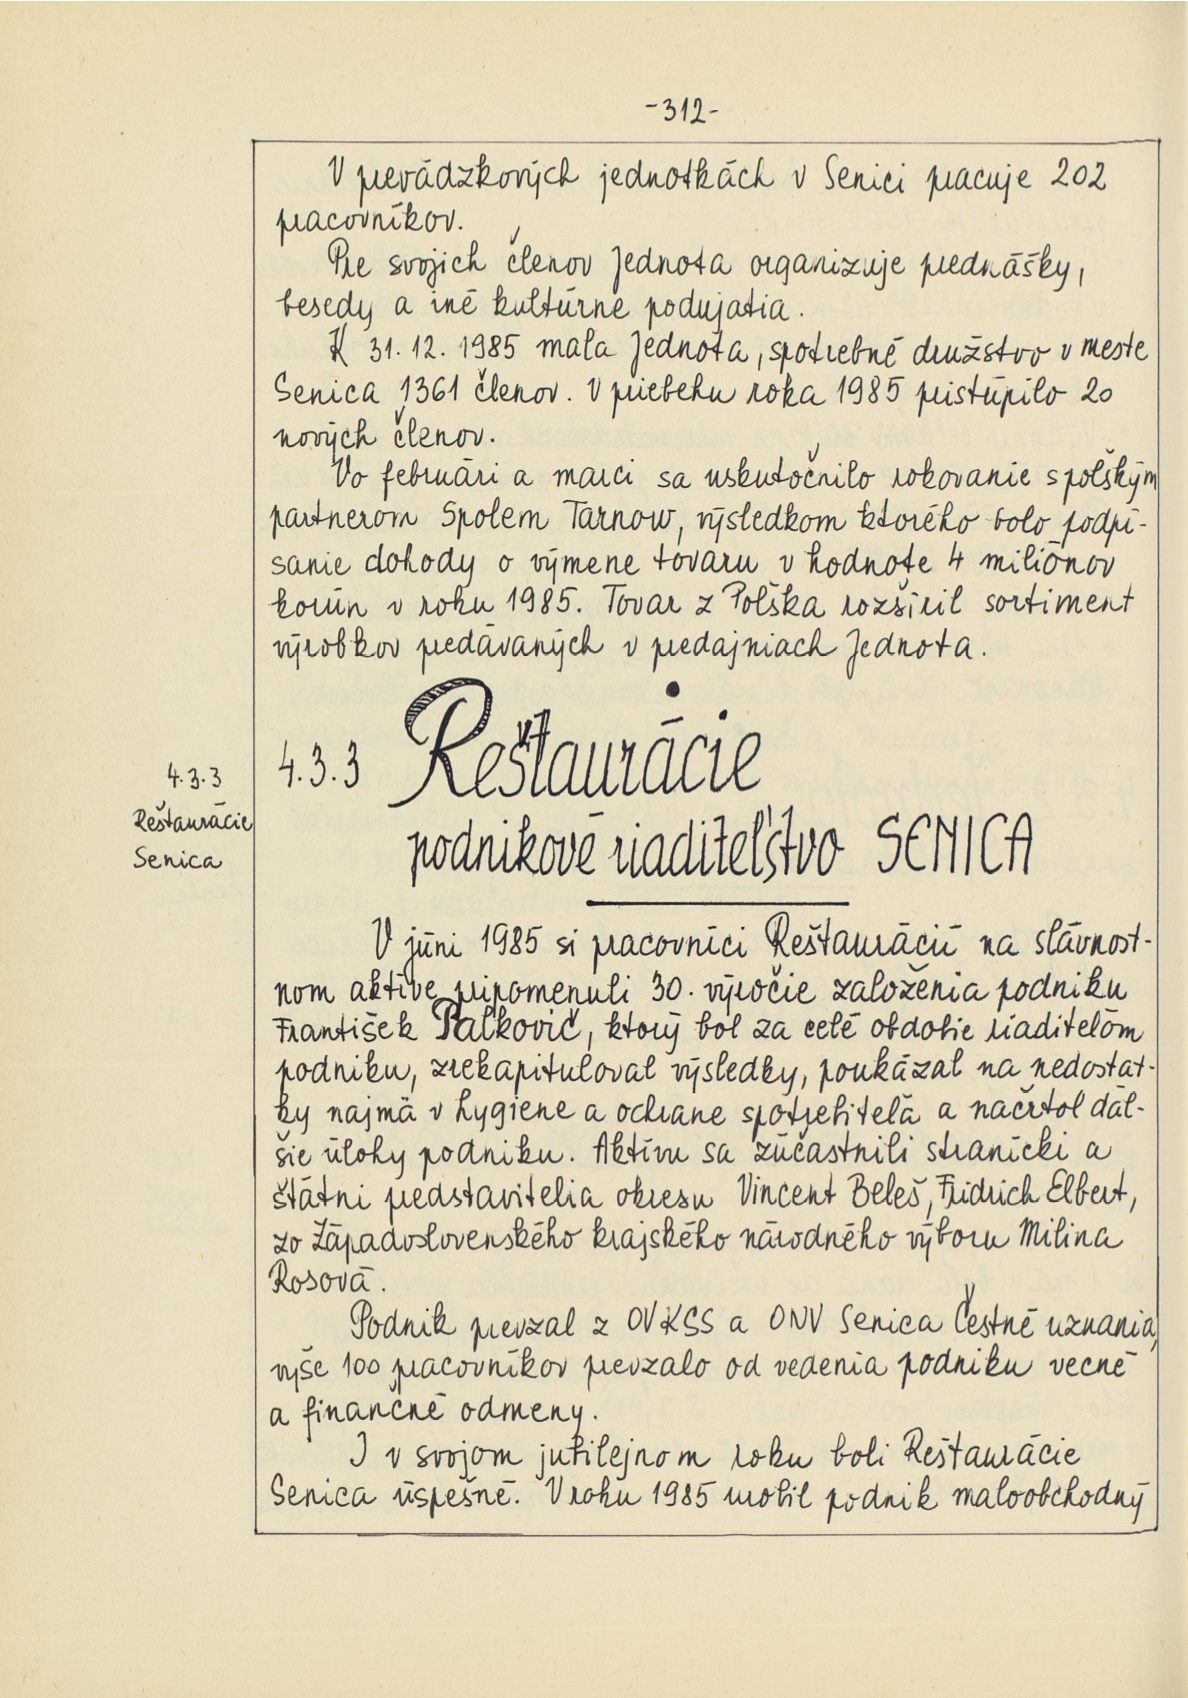 -312-
V prevádzkových jednotkách v Senici pracuje 202
pracovníkov.
Pre svojich členov Jednota organizuje prednášky,
besedy a iné kultúrne podujatia.
K 31.12.1985 mala Jednota, spotrebné družstvo v meste
Senica 1361 členov. V priebehu roka 1985 pristúpilo 20
nových členov.
Vo februári a marci sa uskutočnilo rokovanie s poľským
partnerom Spolem Tarnow, výsledkom ktorého bolo podpí-
sanie dohody o výmene tovaru v hodnote 4 miliónov
korún v roku 1985. Tovar z Poľska rozšíril sortiment
výrobkov predávaných v predajniach Jednota.
4.3.3 Reštaurácie
4.3.3
Reštaurácie
Senica
podnikové riaditeľstvo SENICA
V júni 1985 si pracovníci Reštaurácií na slávnost-
nom aktíve pripomenuli 30. výročie založenia podniku
František Palkovič, ktorý bol za celé obdobie riaditeľom
podniku, zrekapituloval výsledky, poukázal na nedostat-
ky najmä v hygiene a ochrane spotrebiteľa a načrtol ďal-
šie úlohy podniku. Aktívu sa zúčastnili stranícki a
štátni predstavitelia okresu Vincent Beleš, Fridrich Elbert,
zo Západoslovenského krajského národného výboru Milina
Rosová.
Podnik prevzal z OV KSS a ONV Senica Čestné uznania,
vyše 100 pracovníkov prevzalo od vedenia podniku vecné
a finančné odmeny.
I v svojom jubilejnom roku boli Reštaurácie
Senica úspešné. V roku 1985 urobil podnik maloobchodný